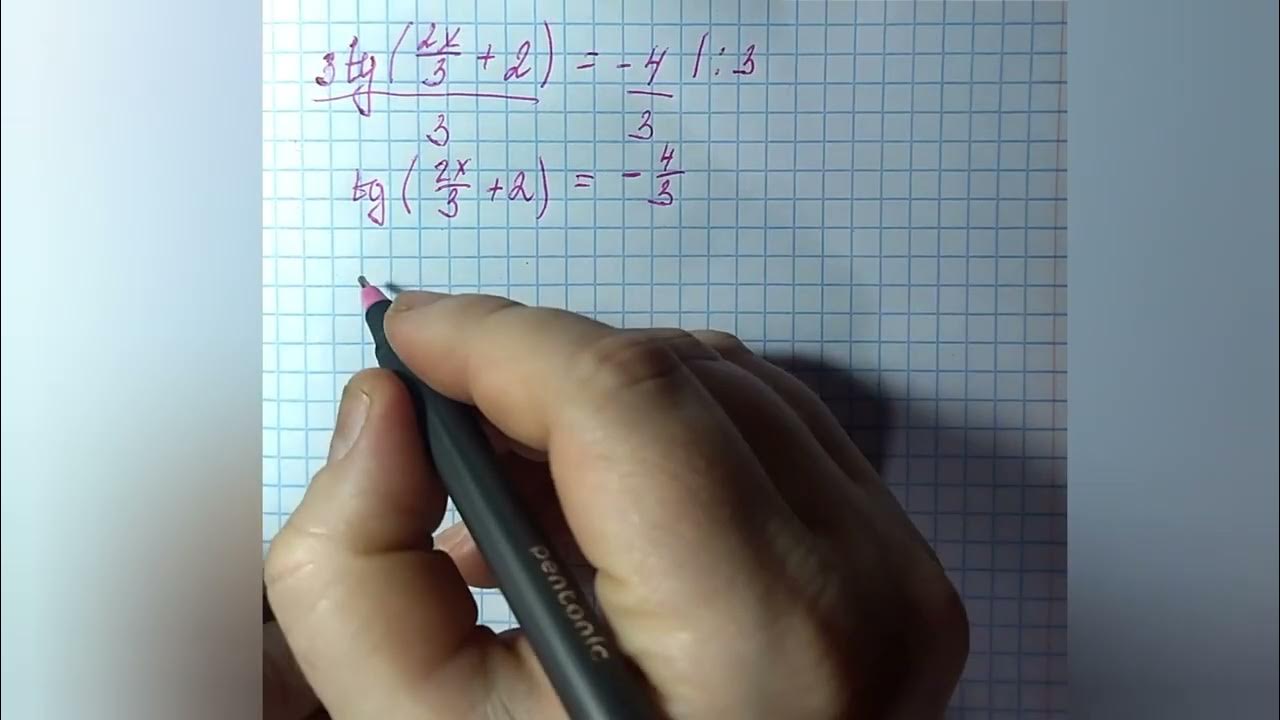 3tg(2x/3 + 2) = -4 | : 3
3 3
tg(2x/3 + 2) = - 4/3
penconic